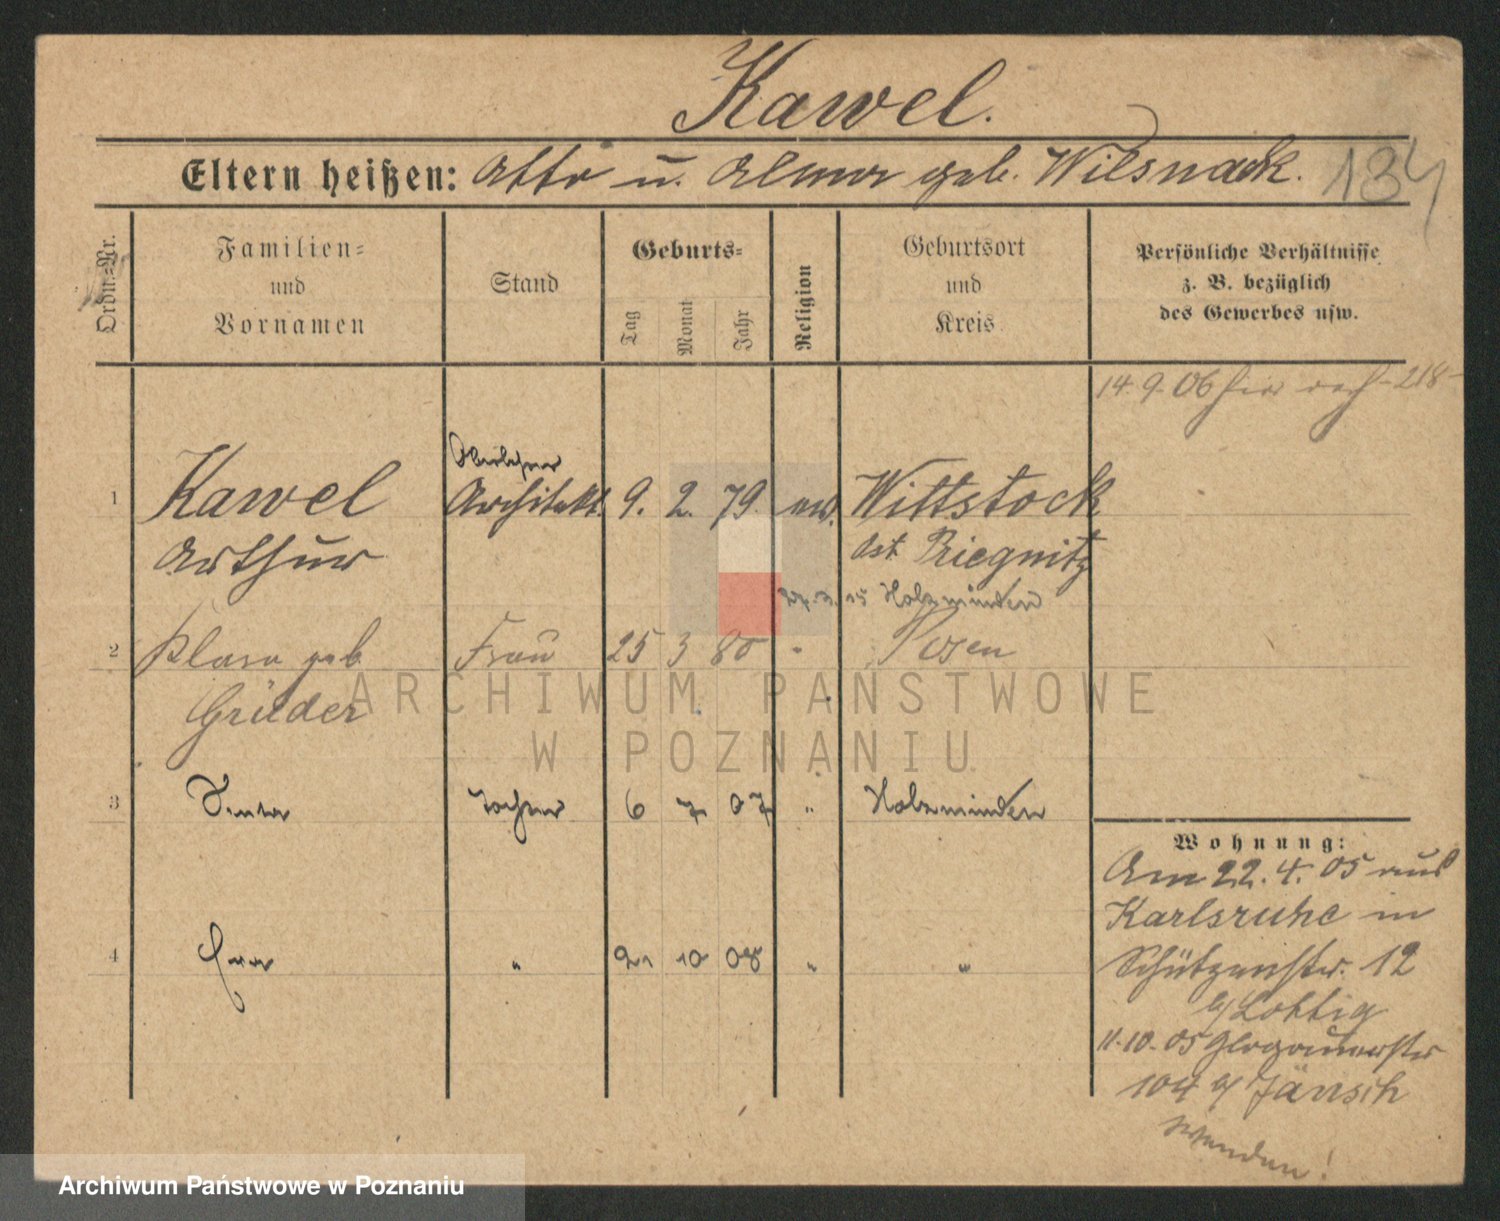 Kawel.
Eltern heißen: Otto u. Alma geb. Wilsnack.
134
Ordn.-Nr.
Familien-
und
Vornamen
Stand
Geburts-
Tag
Monat
Jahr
Religion
Geburtsort
und
Kreis
Persönliche Verhältnisse
z. B. bezüglich
des Gewerbes usw.
14. 9. 06 -218-
Oberlehrer
1 Kawel Architekt. 9. 2. 79. ev. Wittstock
Arthur Ost Priegnitz
15 Holzminden
2 Klara geb Frau 25 3 80 " Posen
Grüder
3 Tochter 6 7 07 " Holzminden
4 " 21 10 08 " "
Wohnung:
Am 22. 4. 05 aus
Karlsruhe in
Schützenstr. 12
b/ Lottig
11. 10. 05 Glogauerstr
104 b/ Jänsch
wenden!
ARCHIWUM PAŃSTWOWE
W POZNANIU
Archiwum Państwowe w Poznaniu